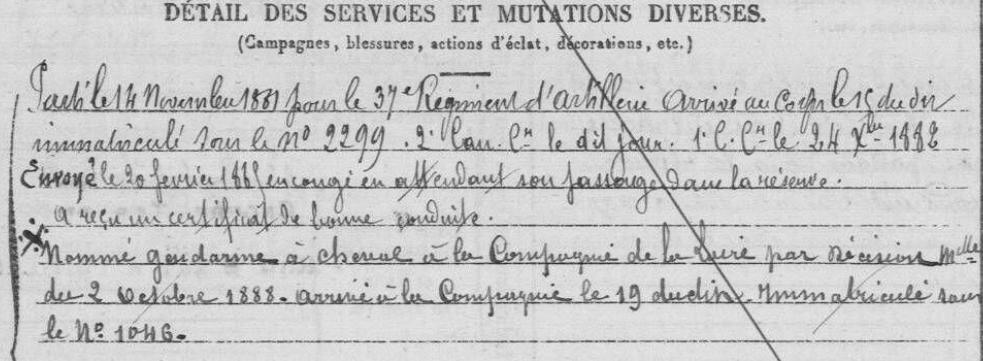 DÉTAIL DES SERVICES ET MUTATIONS DIVERSES.
(Campagnes, blessures, actions d'éclat, décorations, etc.)
Parti le 14 Novembre 1881 pour le 37e Régiment d'artillerie Arrivé au Corps le 15 du dit
immatriculé sous le no 2299. 2e Can. Cer le dit jour. 1e C. Cer le 24 Xbre 1882
Envoyé le 20 février 1885 en congé en attendant son passage dans la réserve.
a reçu un certificat de bonne conduite.
X Nommé gendarme à cheval à la Compagnie de la par décision Mlle
du 2 octobre 1888. arrivé à la Compagnie le 19 dudit. Immatriculé sous
le No 1046.